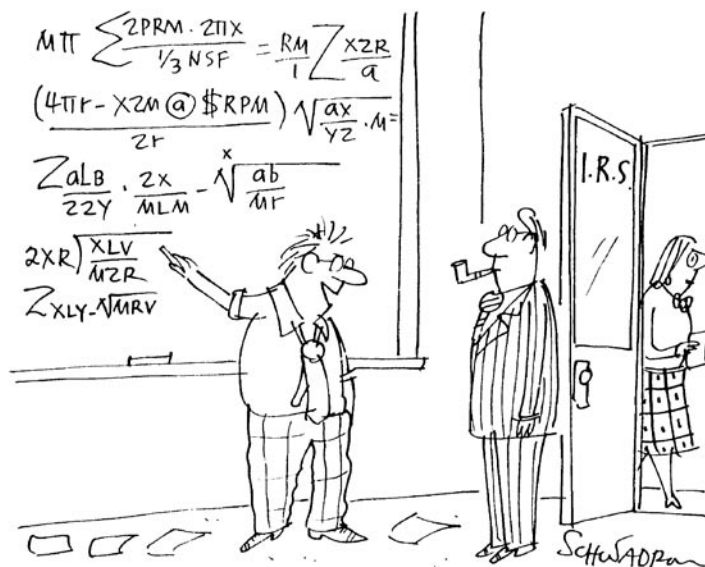 Mπ Σ 2PRM · 2πx / 1/3 NSF = RM/1 Z x2R/a
(4πr - x2M @ $RPM) / 2r √ax/yz · M =
Z aLB/22Y · 2x/MLM - ˣ√ab/Mr
2XR) XLV/M2R
Z XLY - √MRV
I.R.S.
SCHWADRON